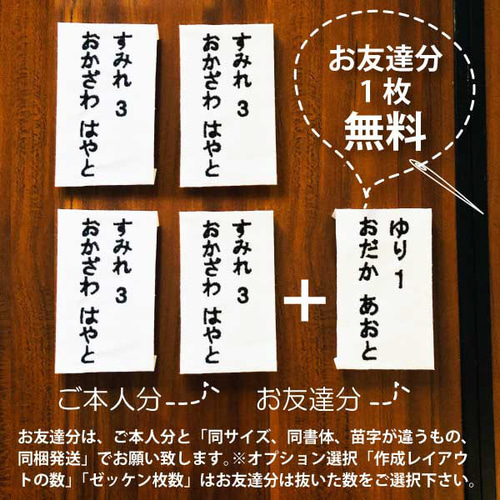 すみれ 3
おかざわ はやと
すみれ 3
おかざわ はやと
お友達分
1枚
無料
すみれ 3
おかざわ はやと
すみれ 3
おかざわ はやと
+
ゆり 1
おだか あおと
ご本人分
お友達分
お友達分は、ご本人分と「同サイズ、同書体、苗字が違うもの、
同梱発送」でお願い致します。※オプション選択「作成レイアウ
トの数」「ゼッケン枚数」はお友達分は抜いた数をご選択下さい。